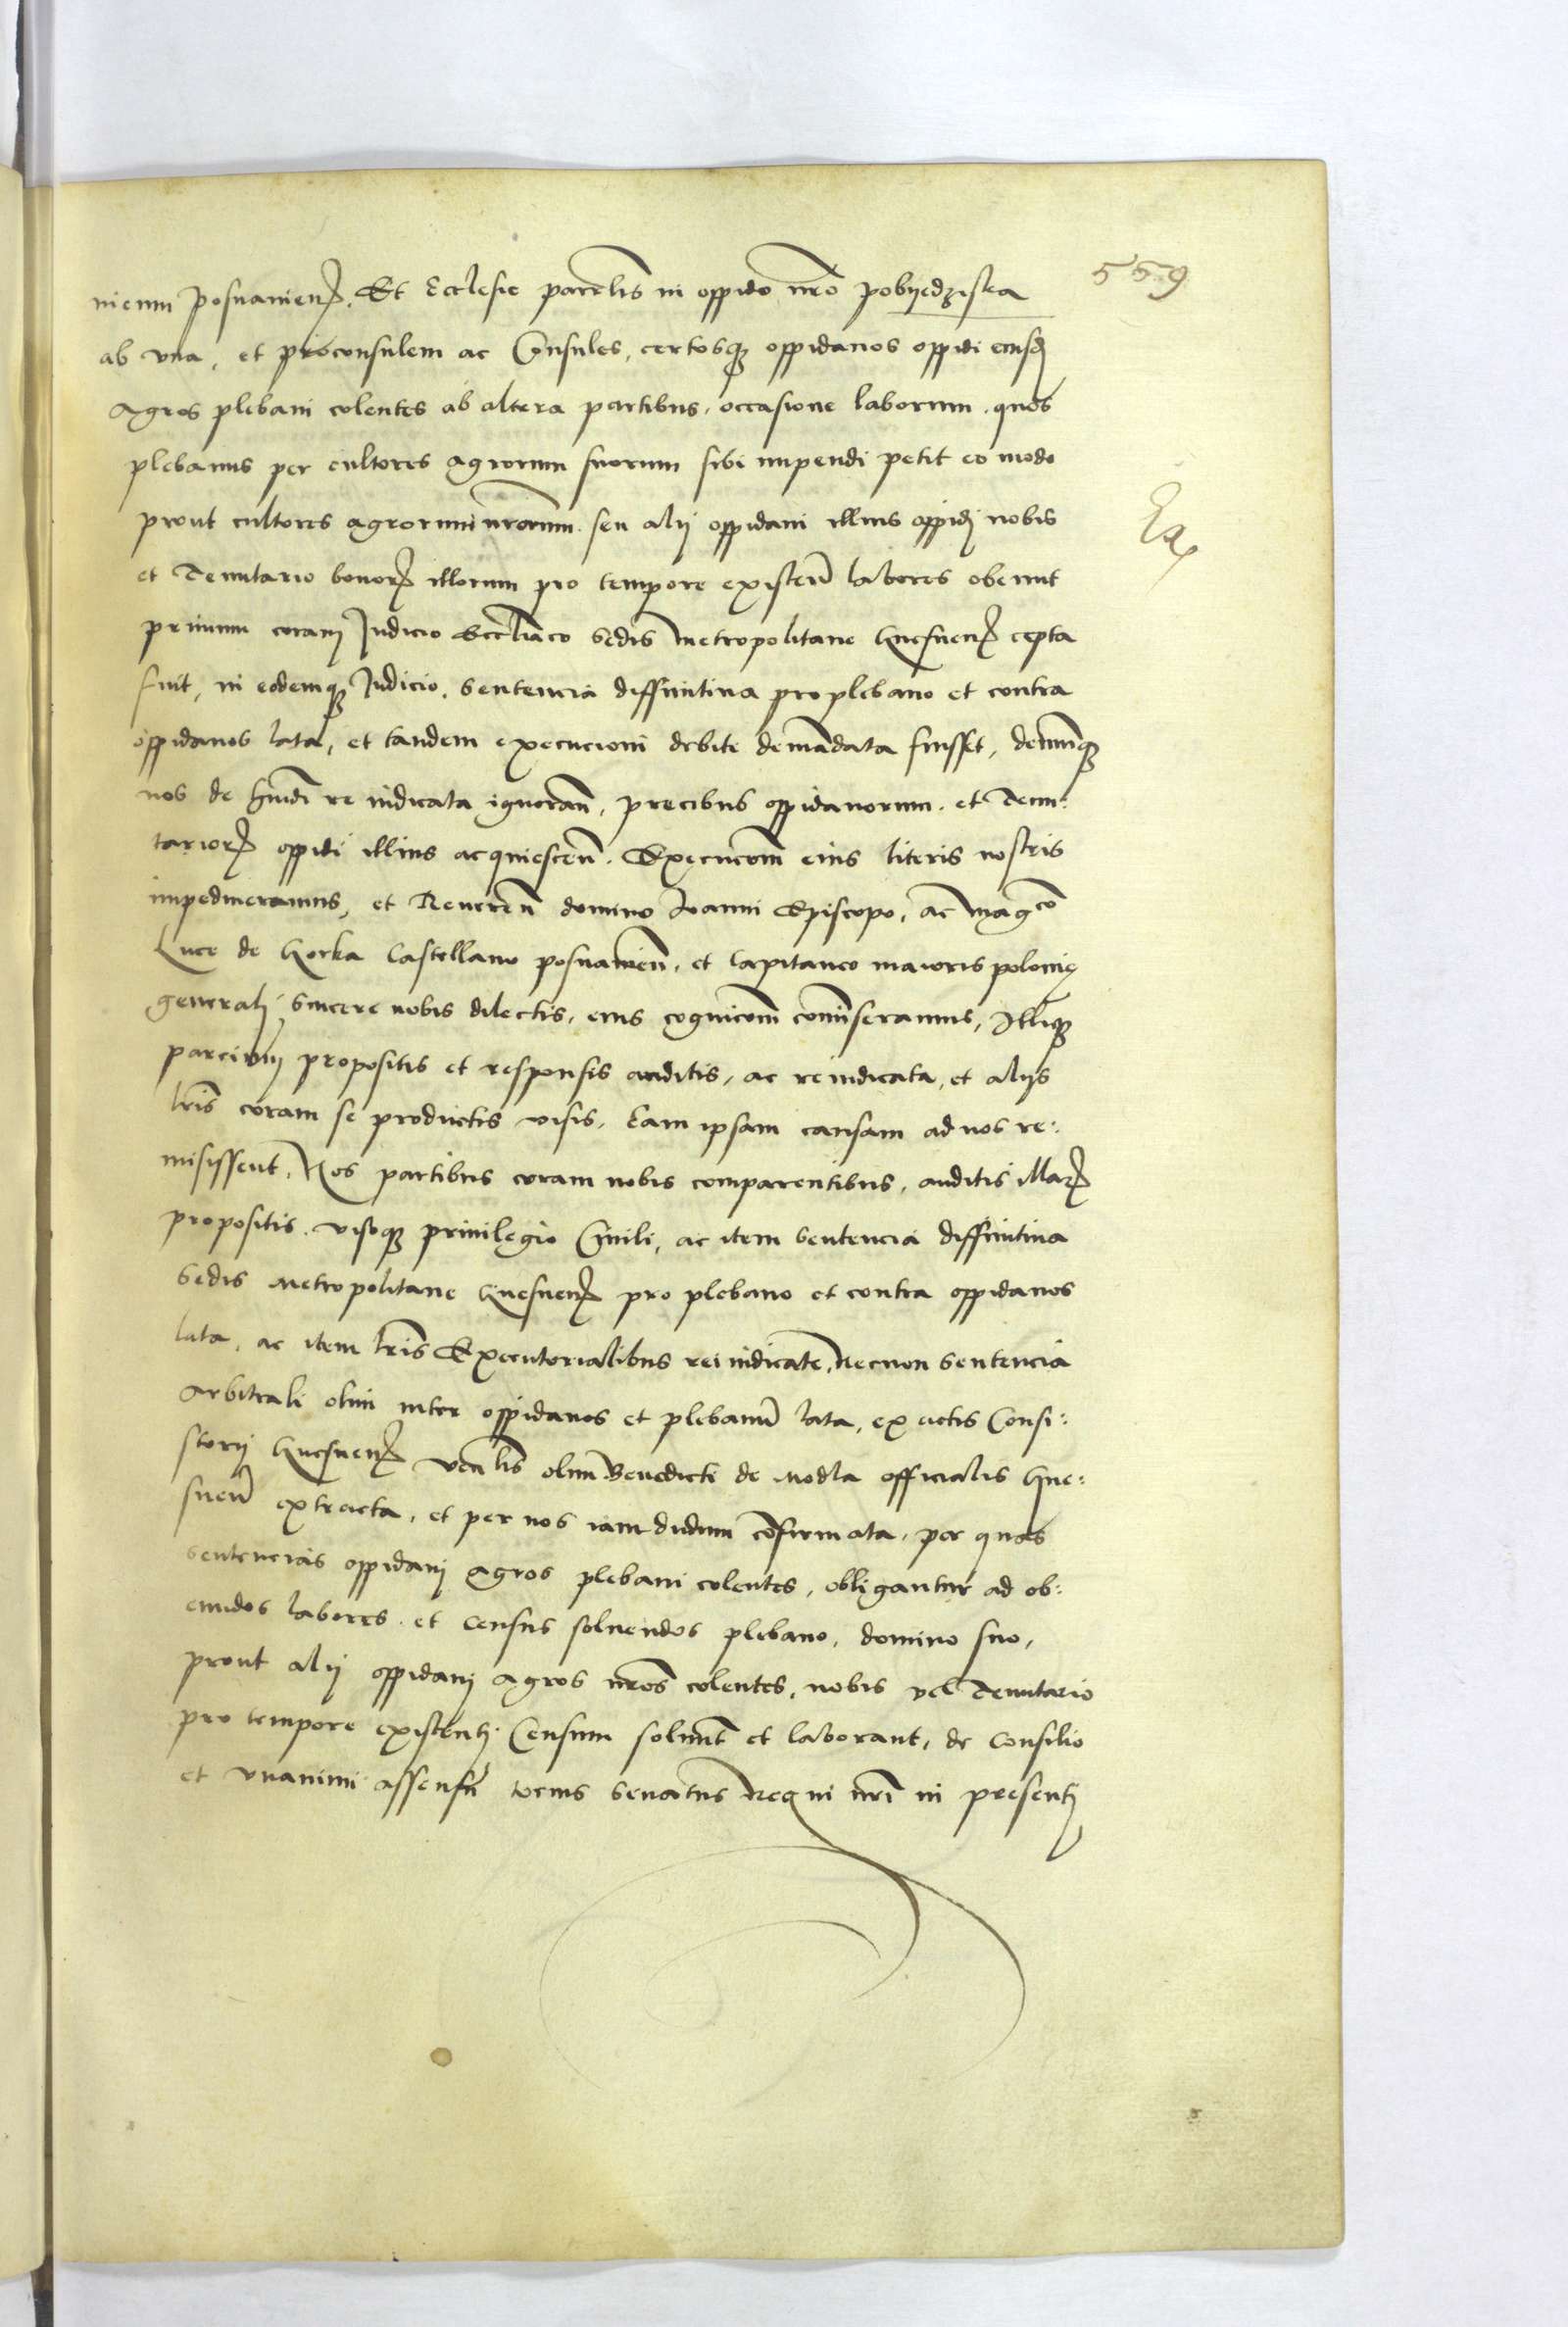 559
nicum Posnanien. Et Ecclesie parrlis in oppido nro Pobyedziska
ab vna, et proconsulem ac Consules, certosque oppidanos oppidi eiusd
Agros plebani colentes ab altera partibus, occasione laborum, quos
plebanus per cultores agrorum suorum sibi impendi petit eo modo
prout cultores agrorum nrorum seu alij oppidani illius oppidi nobis
et Tenutario bonor illorum pro tempore existen labores obeunt
primum coram Judicio Eccliaco Sedis Metropolitane Gnesnen cepta
fuit, in eodemque Judicio, Sentencia diffinitiua pro plebano et contra
oppidanos lata, et tandem execucioni debite demandata fuisset, demumque
nos de huiusdi re iudicata ignoran, precibus oppidanorum et Tenu:
tarior oppidi illius acquiescen. Execucom eius literis nostris
impediueramus, et Reueren domino Joanni Episcopo, ac magco
Luce de Gorka Castellano posnanien, et Capitaneo maioris polonię
generali, sincere nobis dilectis, eius cognicom comiseramus, Illique
parcium propositis et responsis auditis, ac re iudicata, et alijs
lris coram se productis visis, Eam ipsam causam ad nos re:
misissent, Nos partibus coram nobis comparentibus, auditis illar
propositis, visoque priuilegio Ciuili, ac item Sentencia diffinitiua
Sedis Metropolitane Gnesnen pro plebano et contra oppidanos
lata, ac item lris Executorialibus rei iudicate, Necnon Sentencia
Arbitrali olim inter oppidanos et plebanum lata, ex actis Consi:
storij Gnesnen Venlis olim Benedicti de Modla officialis Gne:
snen extracta, et per nos iam dudum confirmata, per quas
sentencias oppidani Agros plebani colentes, obligantur ad ob:
eundos labores et Census soluendos plebano, domino suo,
prout alij oppidani Agros nros colentes, nobis vel Tenutario
pro tempore existenti Censum soluunt et laborant, de Consilio
et vnanimi assensu tocius Senatus Regni nri in presenti